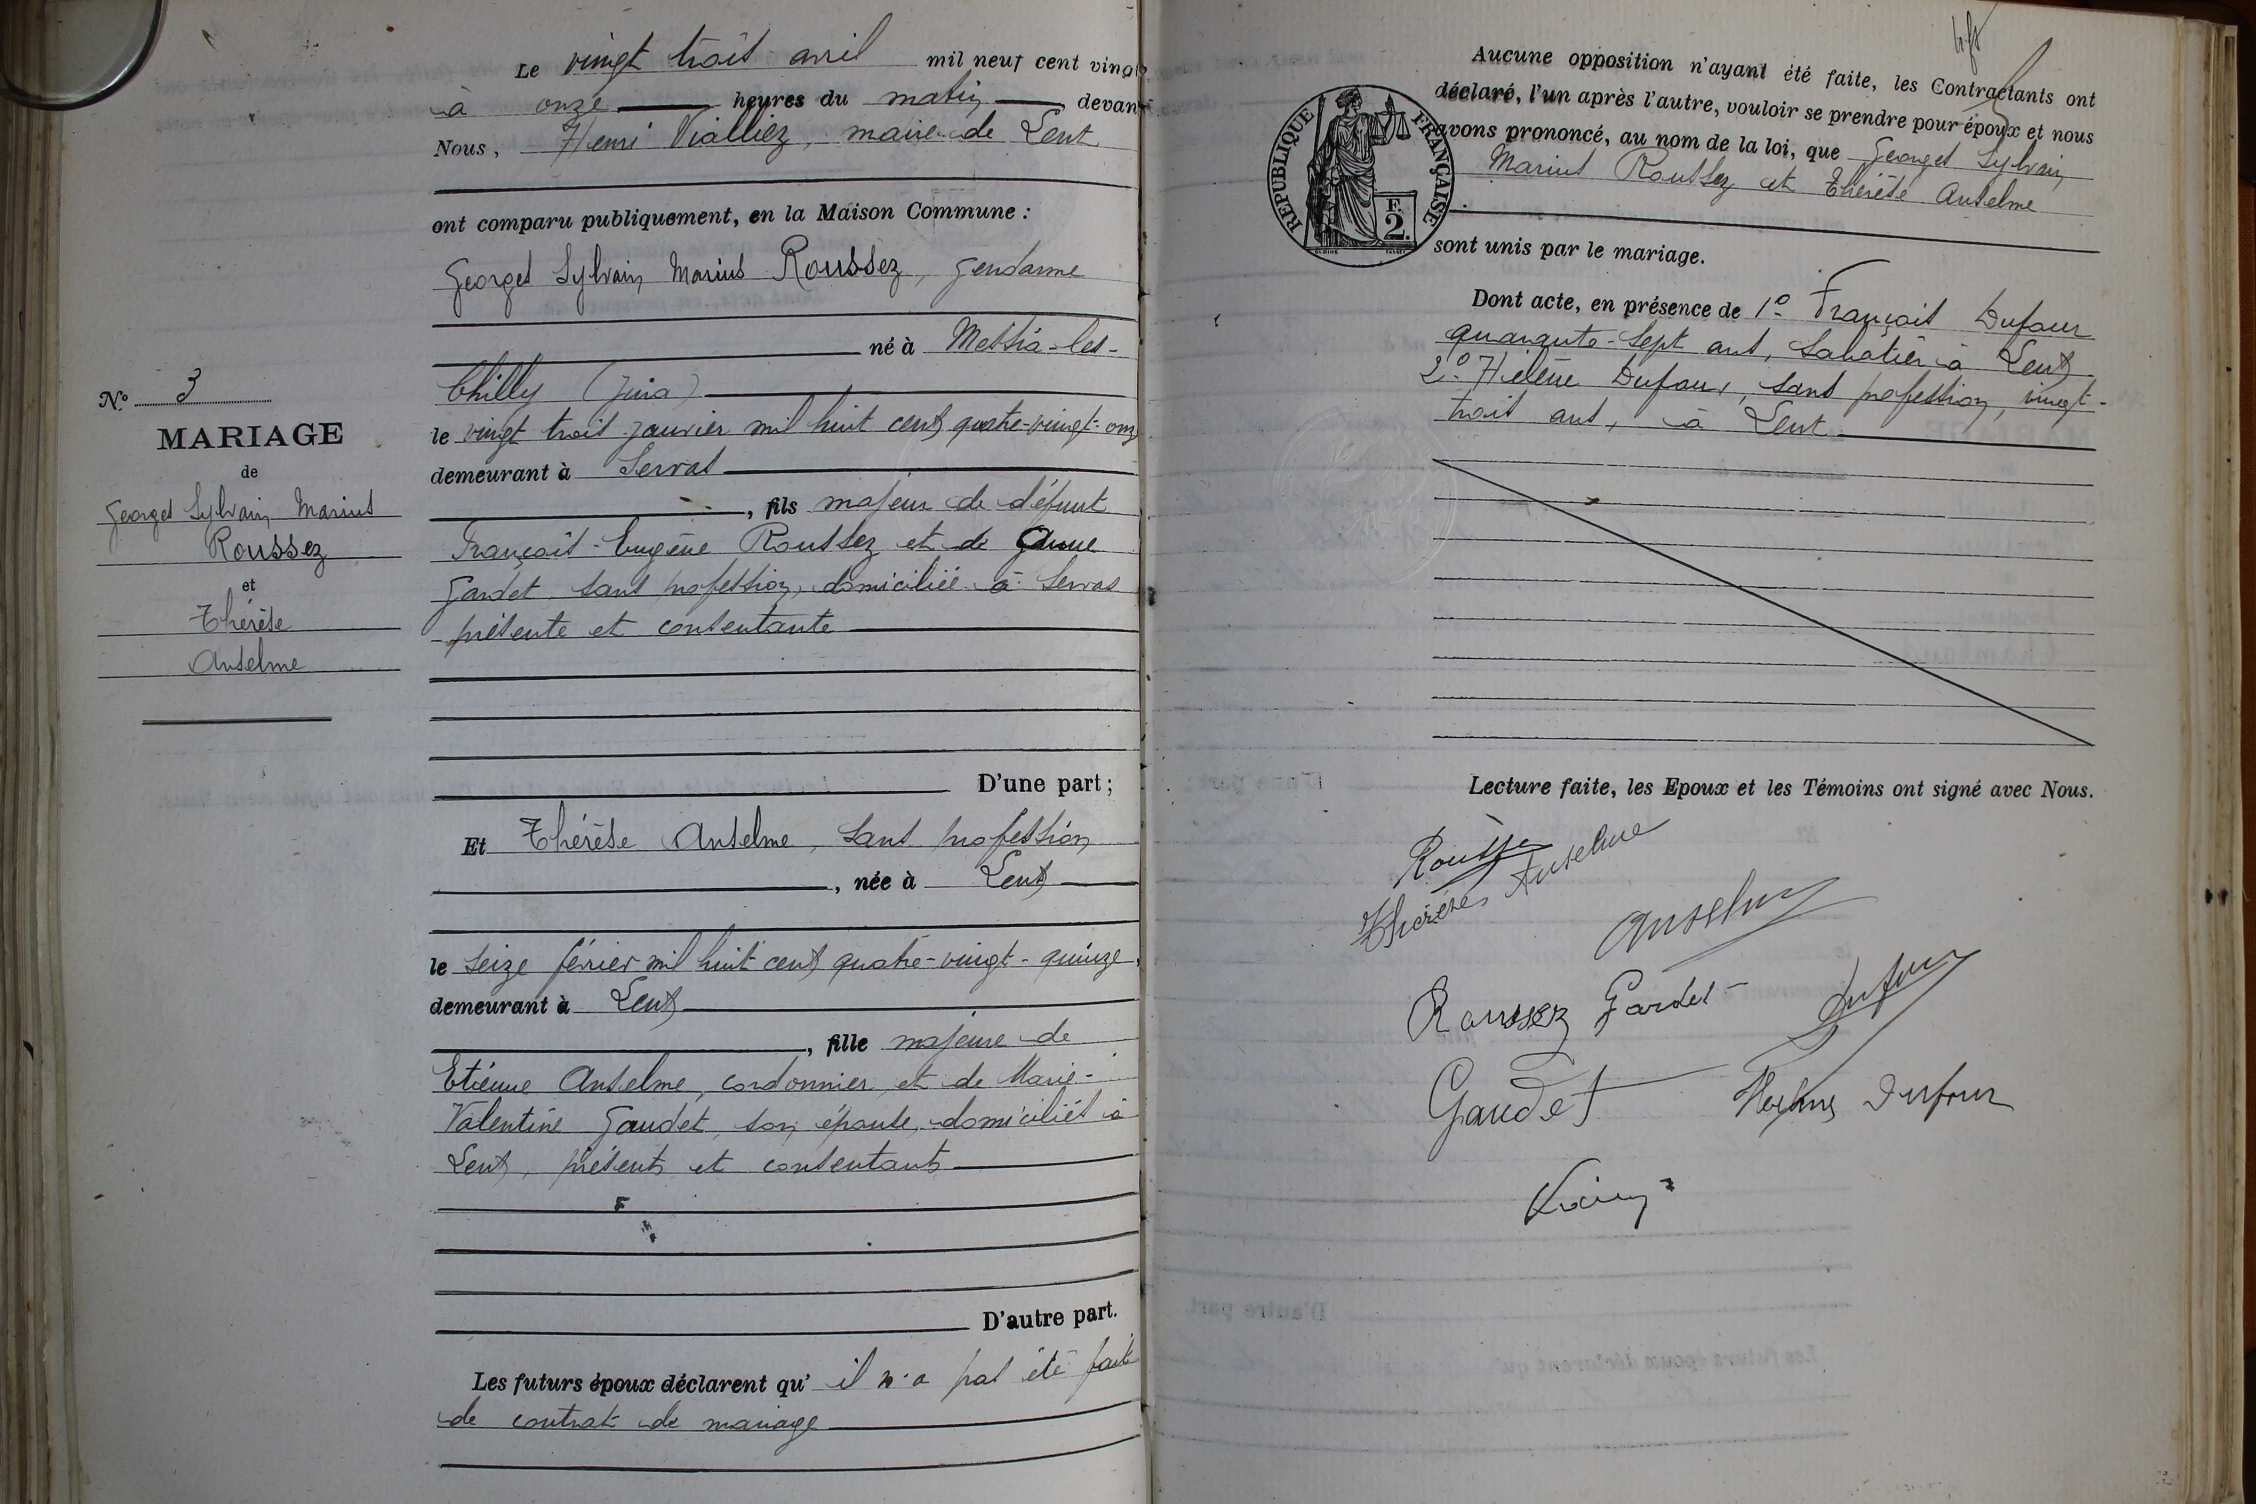 Le vingt trois avril mil neuf cent vingt
à onze heures du matin, devant
Nous, Henri Vialliez, maire de Lent
ont comparu publiquement, en la Maison Commune :
Georges Sylvain Marius Roussez, gendarme
né à Messia-les-
Chilly (Jura)
le vingt trois janvier mil huit cent quatre-vingt-onze
demeurant à Servas
, fils majeur de défunt
François-Eugène Roussez et de Jeanne
Gardet sans profession, domiciliée à Servas
présente et consentante
D'une part ;
Et Thérèse Anselme, sans profession
, née à Lent
le seize février mil huit cent quatre-vingt-quinze,
demeurant à Lent
, fille majeure de
Etienne Anselme, cordonnier et de Marie-
Valentine Gaudet, son épouse, domiciliés à
Lent, présents et consentants
D'autre part.
Les futurs époux déclarent qu' il n'a pas été fait
de contrat de mariage
No 3
MARIAGE
de
Georges Sylvain Marius
Roussez
et
Thérèse
Anselme
Aucune opposition n'ayant été faite, les Contractants ont
déclaré, l'un après l'autre, vouloir se prendre pour époux et nous
avons prononcé, au nom de la loi, que Georges Sylvain
Marius Roussez et Thérèse Anselme
sont unis par le mariage.
RÉPUBLIQUE FRANÇAISE
F.
2.
Dont acte, en présence de 1° François Dufour
quarante-sept ans, sabotier à Lent
2° Hélène Dufour, sans profession, vingt-
trois ans, à Lent
Lecture faite, les Epoux et les Témoins ont signé avec Nous.
Roussez
Thérèse Anselme
Anselme
Roussez Gardet
Dufour
Gaudet
Dufour